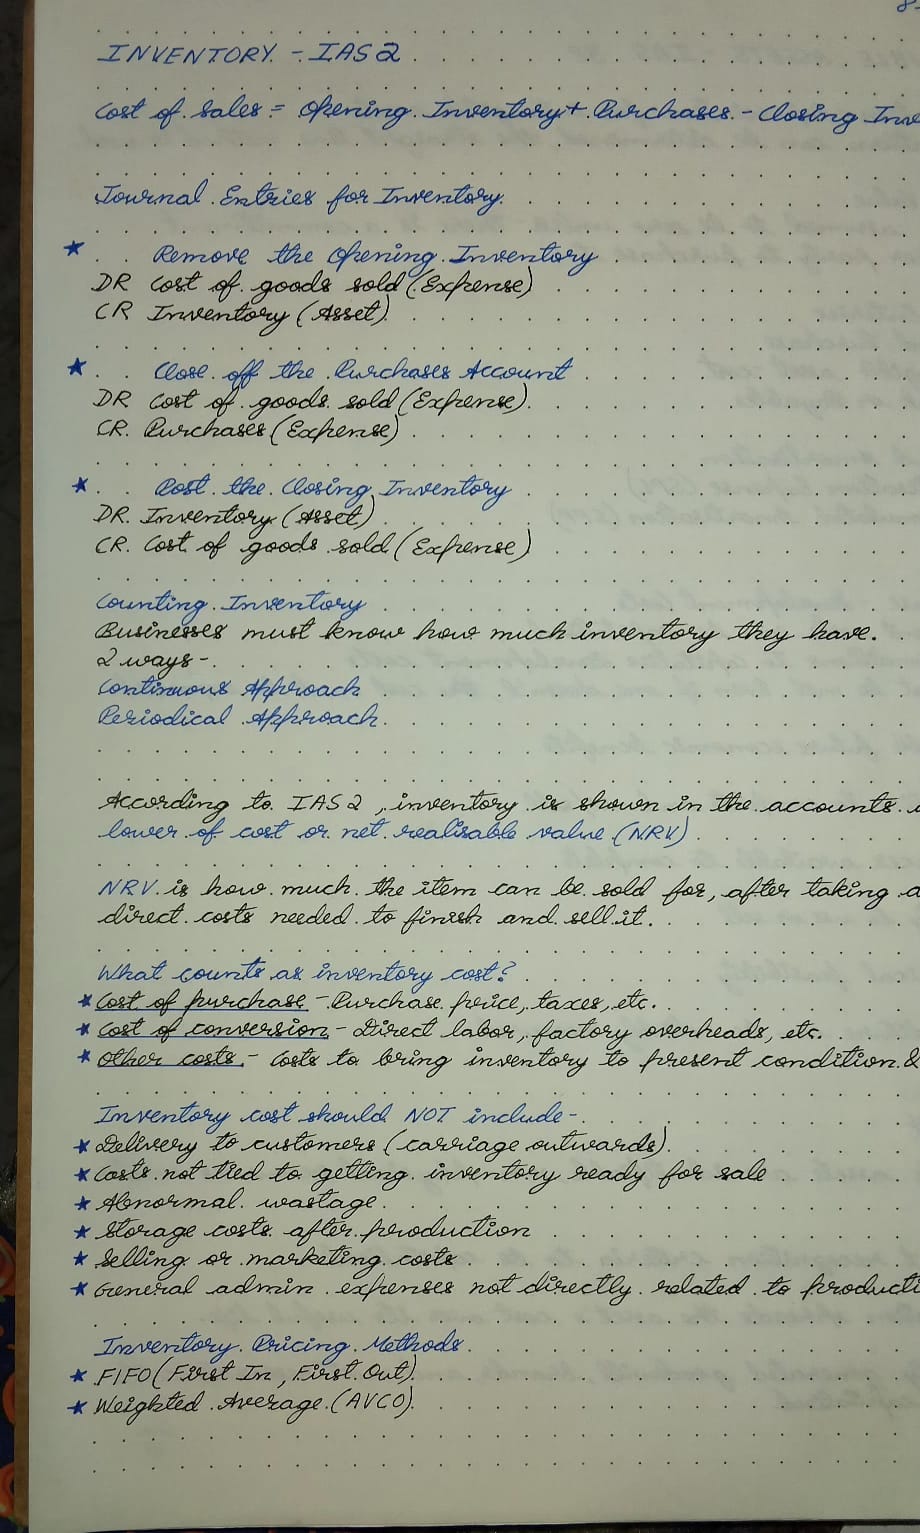 INVENTORY - IAS 2
Cost of sales = Opening Inventory + Purchases - Closing Inve
Journal Entries for Inventory
★ Remove the Opening Inventory
DR Cost of goods sold (Expense)
CR Inventory (Asset)
★ Close off the Purchases Account
DR Cost of goods sold (Expense)
CR Purchases (Expense)
★ Post the Closing Inventory
DR Inventory (Asset)
CR Cost of goods sold (Expense)
Counting Inventory
Businesses must know how much inventory they have.
2 ways -
Continuous Approach
Periodical Approach
According to IAS 2, inventory is shown in the accounts
lower of cost or net realisable value (NRV)
NRV is how much the item can be sold for, after taking
direct costs needed to finish and sell it.
What counts as inventory cost?
★ Cost of purchase - Purchase price, taxes, etc.
★ Cost of conversion - Direct labor, factory overheads, etc.
★ Other costs - Costs to bring inventory to present condition &
Inventory cost should NOT include -
★ Delivery to customers (carriage outwards)
★ Costs not tied to getting inventory ready for sale
★ Abnormal wastage
★ Storage costs after production
★ Selling or marketing costs
★ General admin expenses not directly related to producti
Inventory Pricing Methods
★ FIFO (First In, First Out)
★ Weighted Average (AVCO)